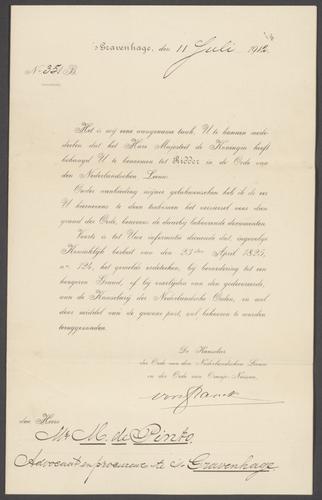 's Gravenhage, den 11 Juli 1912
No. 351 B.
Het is mij eene aangename taak, U te kunnen mede-
deelen dat het Hare Majesteit de Koningin heeft
behaagd U te benoemen tot Ridder in de Orde van
den Nederlandschen Leeuw.
Onder aanbieding mijner gelukwenschen heb ik de eer
U hiernevens te doen toekomen het versiersel voor dien
graad der Orde, benevens de daarbij behoorende documenten.
Voorts is tot Uwe informatie dienende dat, ingevolge
Koninklijk besluit van den 23sten April 1825,
no. 124, het gewone eereteeken, bij bevordering tot een
hoogeren Graad, of bij overlijden van den gedecoreerde,
aan de Kanselarij der Nederlandsche Orden, en wel
door middel van de gewone post, wel behooren te worden
teruggezonden.
De Kanselier
der Orde van den Nederlandschen Leeuw
en der Orde van Oranje-Nassau,
den Heere
Mr M. de Pinto,
Advocaat en procureur te 's Gravenhage